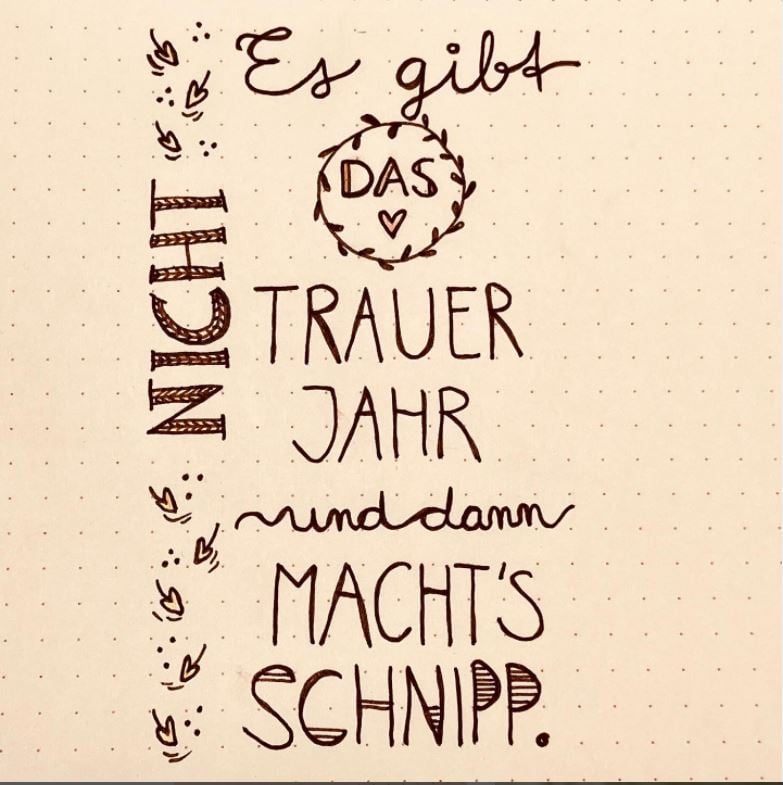 Es gibt
DAS
TRAUER
JAHR
und dann
MACHT'S
SCHNIPP.
NICHT